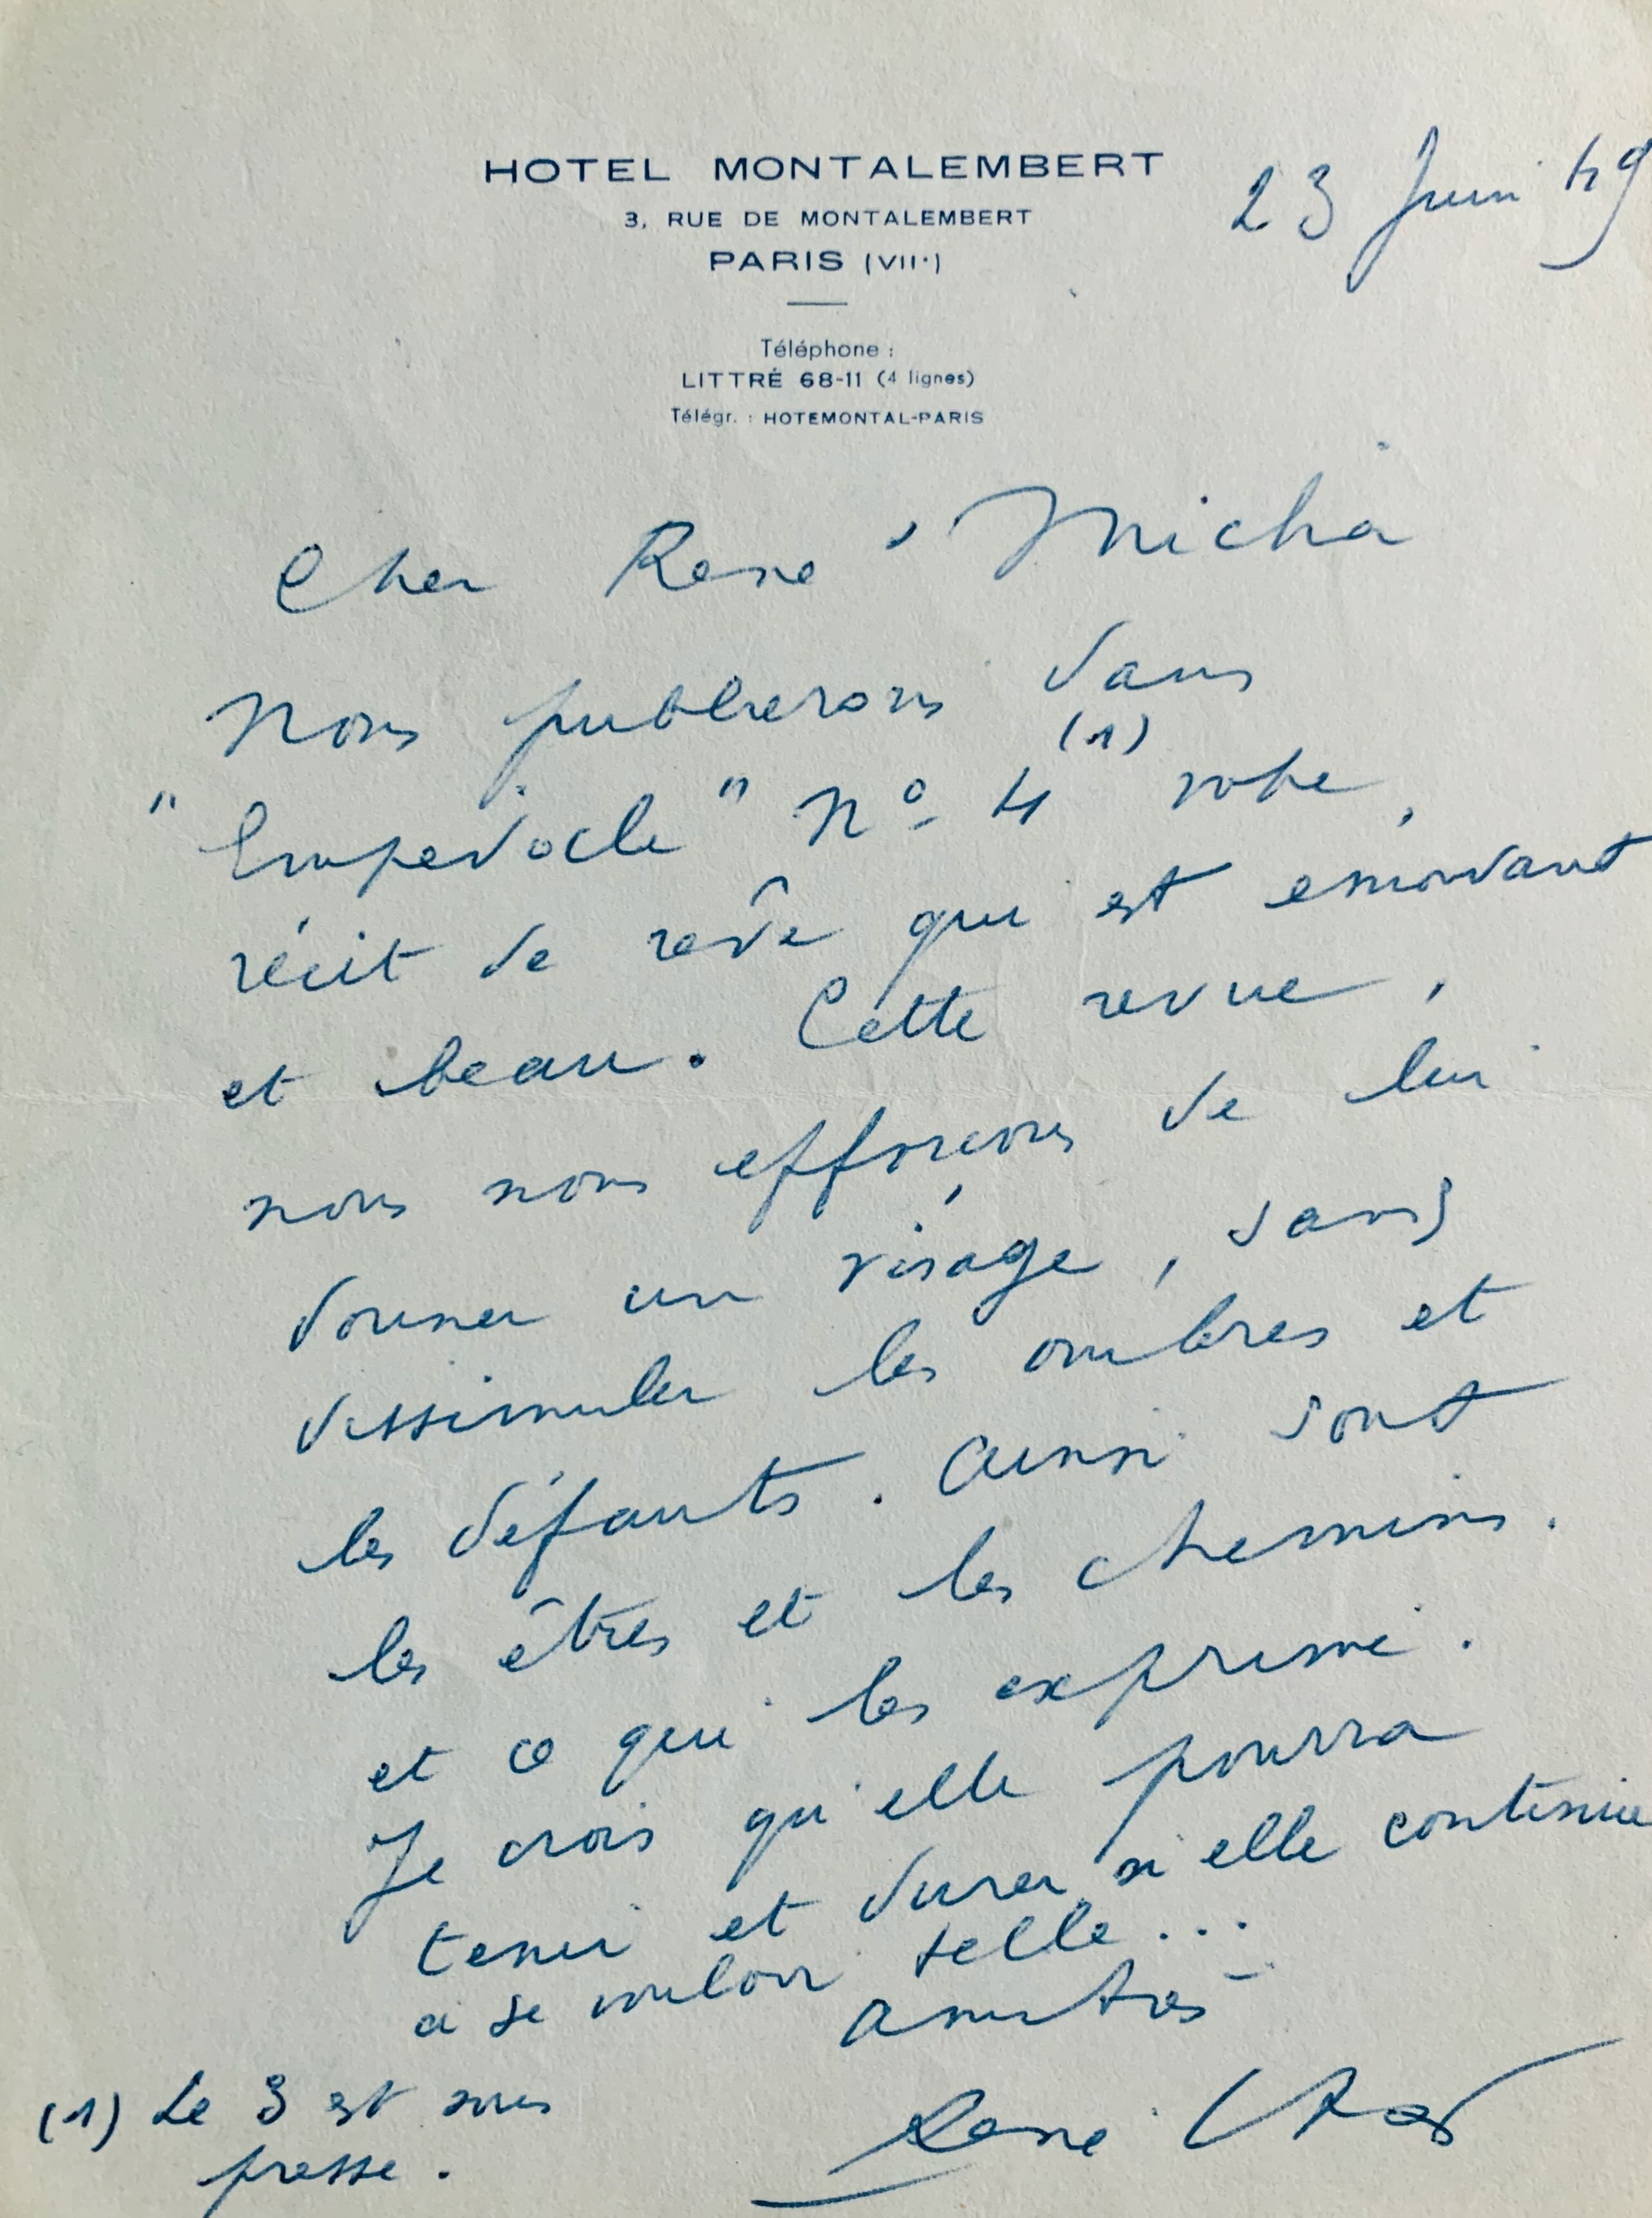 HOTEL MONTALEMBERT
3, RUE DE MONTALEMBERT
PARIS (VIIe)
23 Juin 49
Téléphone :
LITTRÉ 68-11 (4 lignes)
Télégr. : HOTEMONTAL-PARIS
Cher René Micha
Nous publierons dans
"Empedocle" No 4 (1) votre
récit de rêve qui est émouvant
et beau. Cette revue,
nous nous efforçons de lui
donner un visage, sans
dissimuler les ombres et
les défauts. Ainsi sont
les êtres et les chemins.
et ce qui les exprime.
Je crois qu'elle pourra
tenir et durer si elle continue
a se vouloir telle...
amitiés
René Char
(1) Le 3 est sous
presse.